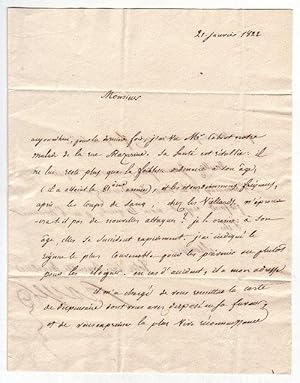 21 janvier 1822
Monsieur
aujourdhui, pour la derniere fois, j'ai vu Mr. notre
malade de la rue Mazarine. Sa santé est rétablie; il
ne lui reste plus que la faiblesse ordinaire à son âge,
(il a atteint la 81ème année), et les étourdissemens fréquens,
après les coups de sang, chez les Vieillards. n'éprouvera
t-il pas de nouvelles attaques? je le crains: à son
âge, elles se succèdent rapidement. j'ai indiqué le
régime le plus convenable pour les prévenir ou plutôt
pour les éloigner. en cas d'accident, il a mon adresse
il m'a chargé de vous remettre la carte
de Dispensaire dont vous avez disposé en sa faveur,
et de vous exprimer la plus Vive reconnaissance